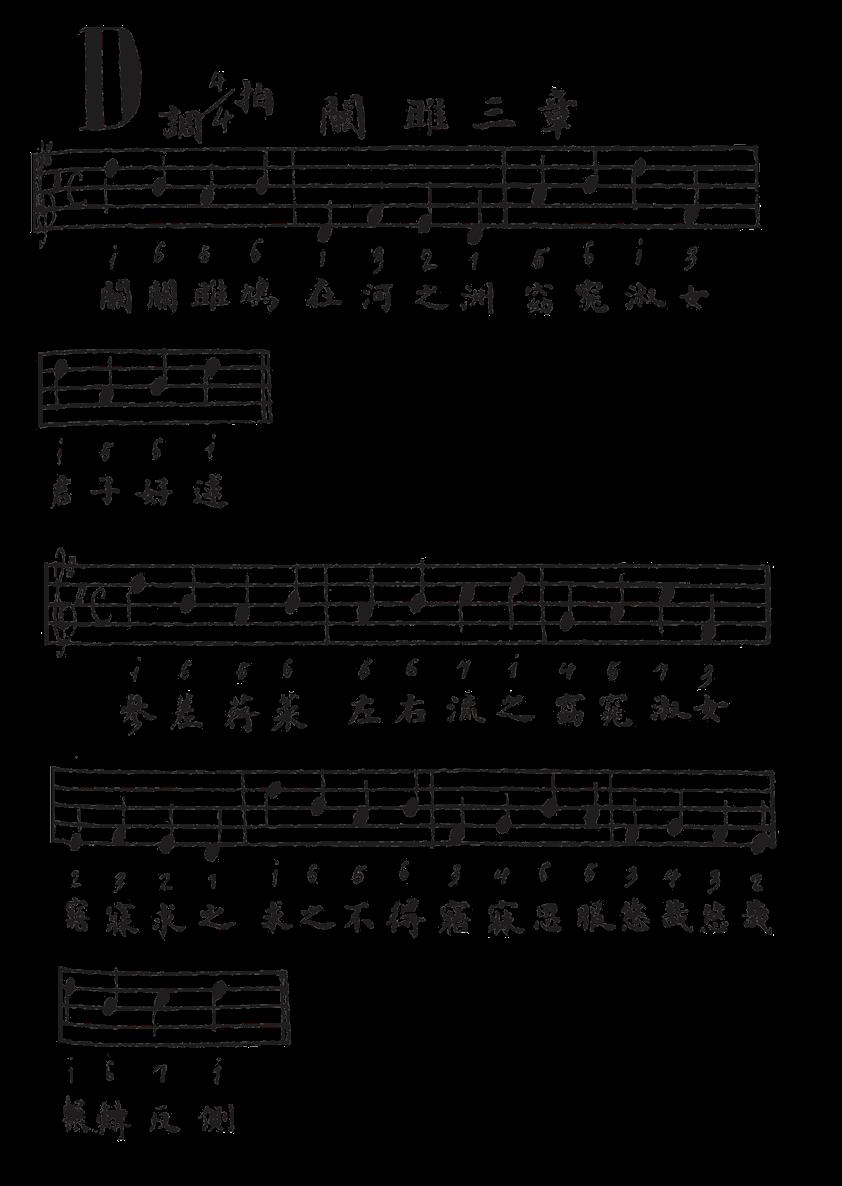 D 調 4/4 拍 關雎三章
i 6 5 6 1 3 2 1 5 6 i 3
關關雎鳩 在河之洲 窈窕淑女
i 5 6 i
君子好逑
i 6 5 6 5 6 7 i 4 5 7 3
參差荇菜 左右流之 窈窕淑女
2 3 2 1 i 6 5 6 3 4 6 5 3 4 3 2
寤寐求之 求之不得 寤寐思服 悠哉悠哉
i 6 7 i
輾轉反側